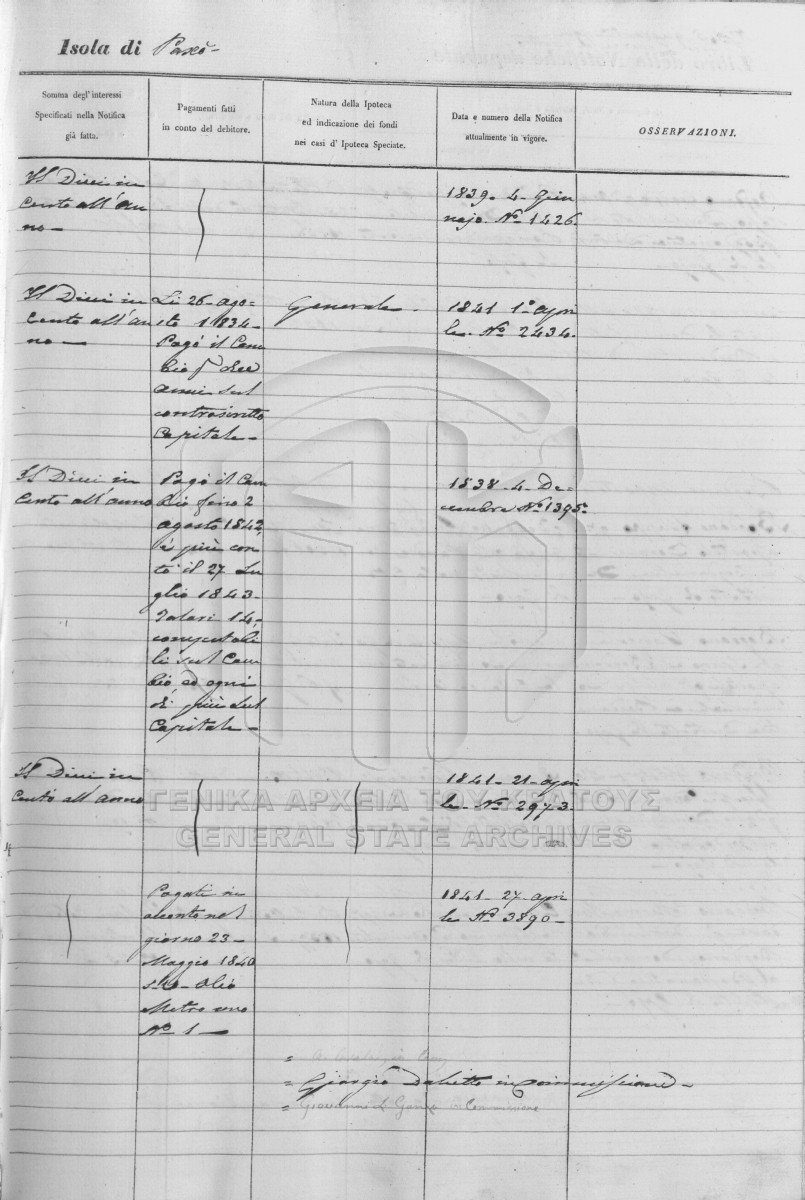 Isola di Paxò
Somma degl'interessi
Specificati nella Notifica
già fatta.
Pagamenti fatti
in conto del debitore.
Natura della Ipoteca
ed indicazione dei fondi
nei casi d' Ipoteca Speciale.
Data e numero della Notifica
attualmente in vigore.
OSSERVAZIONI.
Il Dieci in
Cento all'an
no
1839. 4. Gen
najo. No 1426.
Il Dieci in
Cento all'an
no
Li 26 ago=
sto 1834
Pagò il Cam
bio
anni sul
controscritto
Capitale
Generale.
1841 1o apri
le. No 2434.
Il Dieci in
Cento all'anno
Pagò il Cam
bio fino 2
agosto 1842,
è più con
tò il 27 Lu
glio 1843
Talari 14,
computabi
li sul Cam
bio, ed ogni
di più sul
Capitale
1838. 4. De=
cembre No 1395.
Il Dieci in
Cento all'anno
1841. 21. apri
le No 2973.
ΓΕΝΙΚΑ ΑΡΧΕΙΑ ΤΟΥ ΚΡΑΤΟΥΣ
GENERAL STATE ARCHIVES
4
Pagati in
aconto nel
giorno 23
Maggio 1840
Olio
Metro uno
No 1
1841. 27. apri
le No 3890
= Giorgio in Commissione
= Giovanni in Commissione